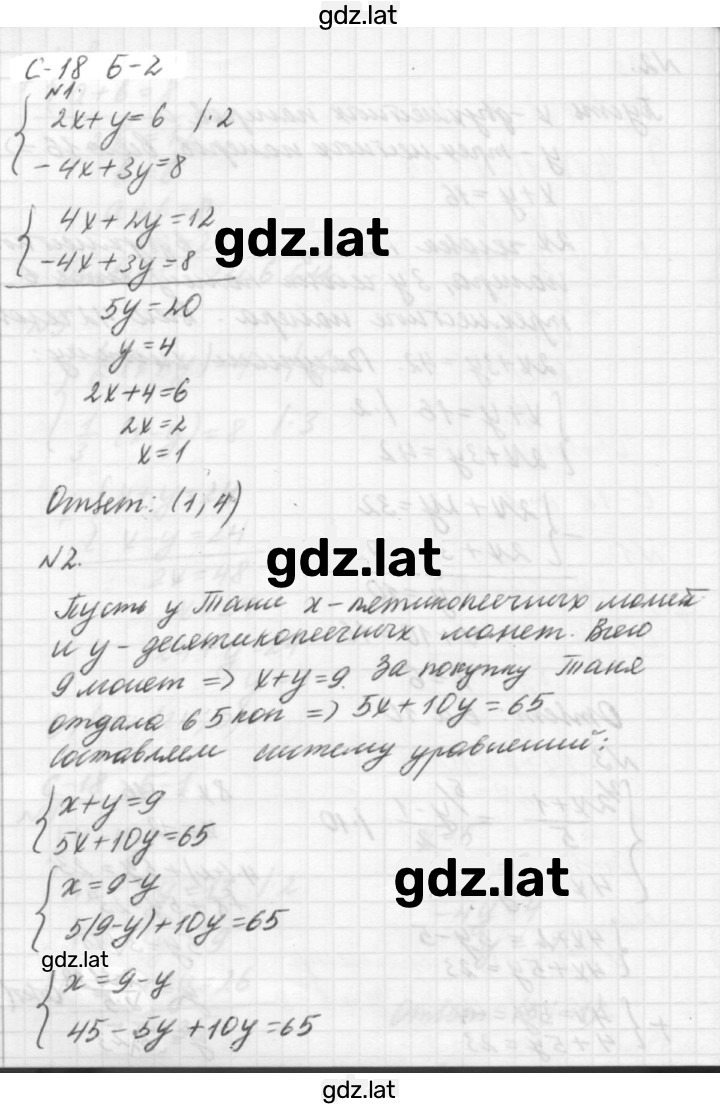 gdz.lat
С-18 Б-2
№1.
{ 2x+y=6 /·2
-4x+3y=8
{ 4x+2y=12
-4x+3y=8
gdz.lat
5y=20
y=4
2x+4=6
2x=2
x=1
Ответ: (1,4)
№2.
gdz.lat
Пусть у Тани x-пятикопеечных монет
и y-десятикопеечных монет. Всего
9 монет => x+y=9. За покупку Таня
отдала 65 коп => 5x+10y=65
Составляем систему уравнений:
{ x+y=9
5x+10y=65
{ x=9-y
5(9-y)+10y=65
gdz.lat
gdz.lat
{ x=9-y
45-5y+10y=65
gdz.lat